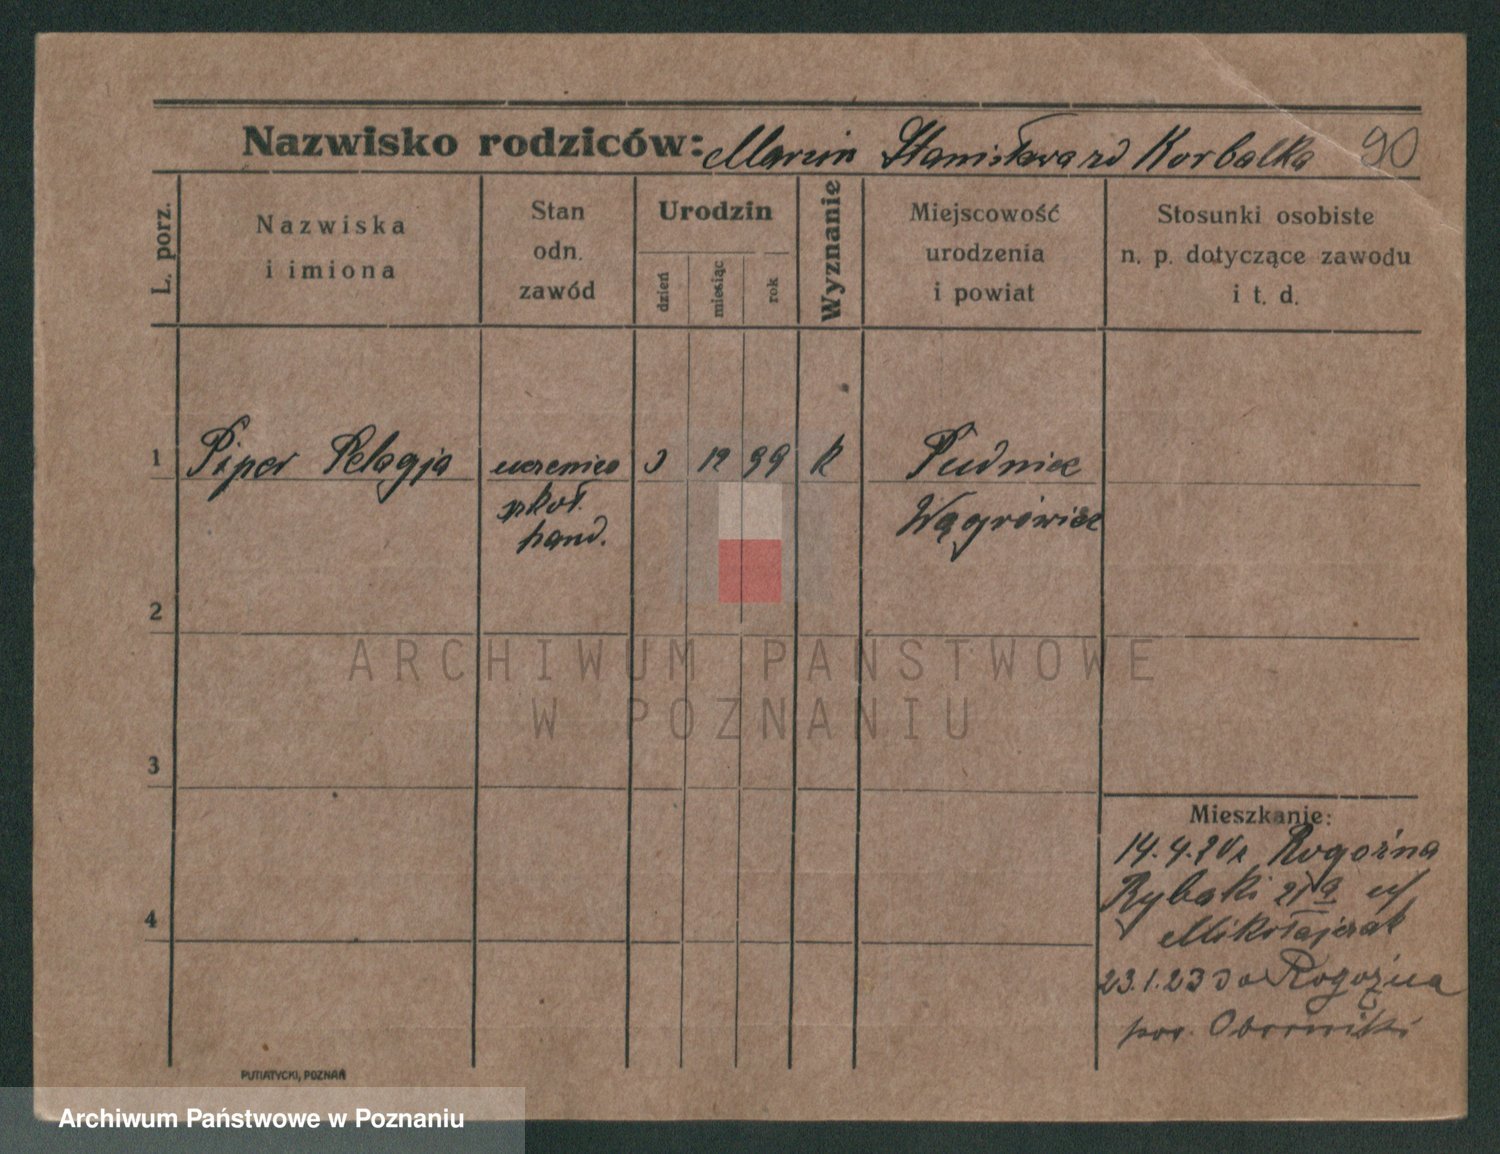 Nazwisko rodziców: Marcin Stanisława zd Korbalka 90
L. porz.
Nazwiska i imiona
Stan odn. zawód
Urodzin
dzień
miesiąc
rok
Wyznanie
Miejscowość urodzenia i powiat
Stosunki osobiste n. p. dotyczące zawodu i t. d.
1 Piper Pelagja uczenica 3 12 99 k Pudnice
szkoł. Wągrówiec
hand.
2
3
4
Mieszkanie:
14.4.20 z Rogoźna
Rybaki 21
Mikołajczak
23.1.23 do Rogoźna
pow. Oborniki
PUTIATYCKI, POZNAŃ
ARCHIWUM PAŃSTWOWE
W POZNANIU
Archiwum Państwowe w Poznaniu